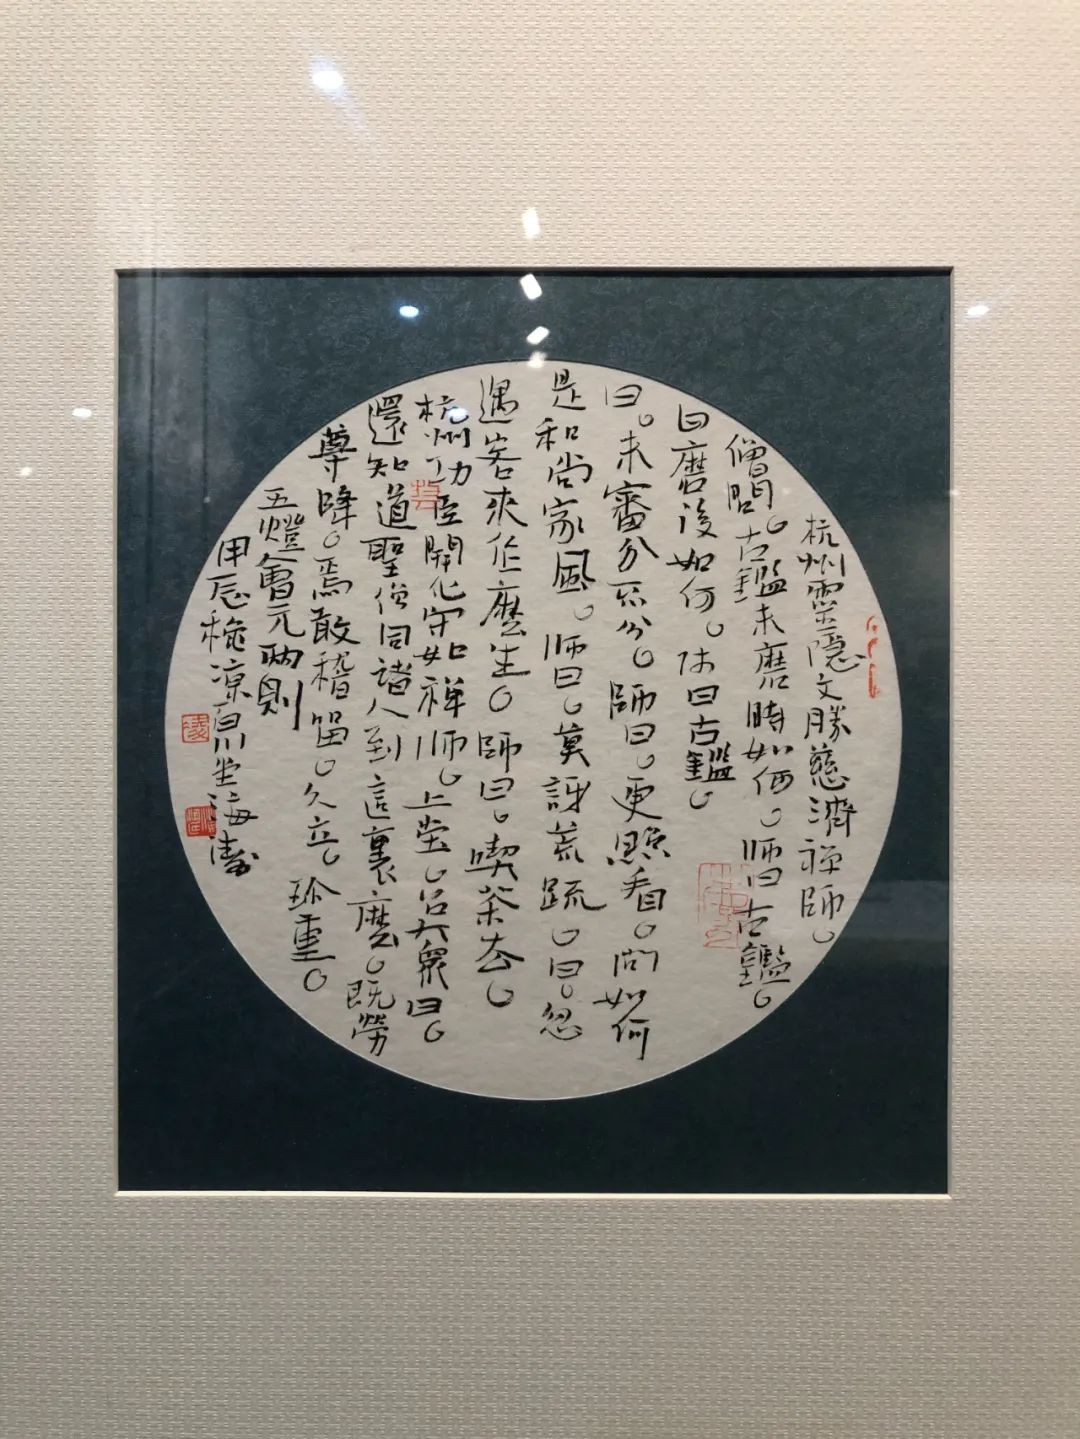 杭州靈隱文勝慈濟禪師。
僧問。古鑑未磨時如何。师曰古鑑。
曰磨後如何。师曰古鑑。
曰。未審分不分。師曰。更照看。问如何
是和尚家風。师曰。莫訝荒疏。曰。忽
遇客來作麽生。師曰。喫茶去。
杭州功臣開化守如禅师。上堂。召大衆曰。
還知道聖僧同諸人到這裏麽。既勞
尊降。焉敢稽留。久立。珍重。
五燈會元兩則
甲辰秋涼百川堂海濤